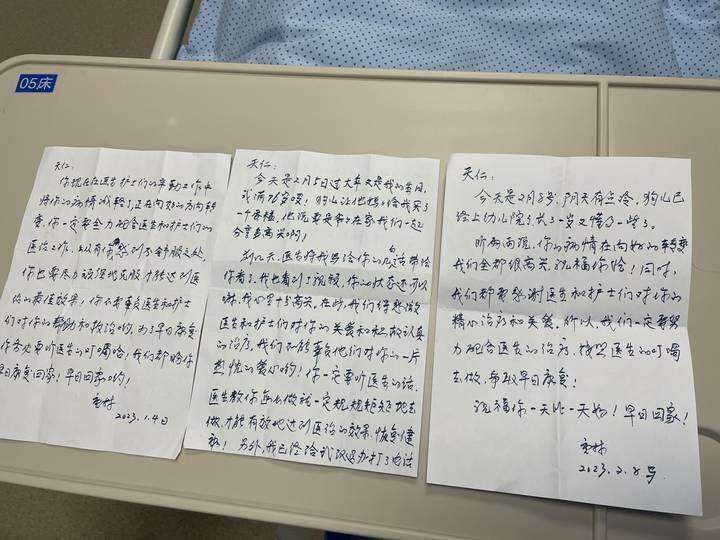 05床
天仁:
你现在在医生护士们的辛勤工作中
将你的病情减轻了,正在向好的方向转
变。你一定要全力配合医生和护士们的
医治工作。
你也要尽力该强地克服才能达到医
治的最佳效果,你不要辜负医生和护士
们对你的帮助和救治哟。为了早日康复
你务必要听医生的叮嘱哈,我们都盼你
早日康复回家!早日回家哟!
2023.1.4日
天仁:
今天是2月5日过大年又是我的生日,
我满76岁噢!狗儿让他妈给我买了
一个蛋糕,他说要是爷爷在家我们一起
分享多高兴啊!
前几天,医生将我写给你的信带给
你看了,我也看到了视频,你的状态还可以
嘛,我心里十分高兴。在此,我们得感谢
医生和护士们对你的关爱和积极认真
的治疗,我们不能辜负他们对你的一片
热忱的爱心哟!你一定要听医生的话,
医生教你怎么做就一定规规矩矩地去
做,才能有效地达到医治的效果,恢复健
康!另外,我已经给
打了电话
天仁:
今天是2月8号,阴天有点冷,狗儿已
经上幼儿院了,长了一岁又懂了一些了。
听
你的病情在向好的转变
我们全都很高兴,祝福你哈!同时,
我们都要感谢医生和护士们对你的
精心治疗和关爱。所以,我们一定要努
力配合医生的治疗,按照医生的叮嘱
去做,争取早日康复!
祝福你一天比一天好!早日回家!
2023.2.8号